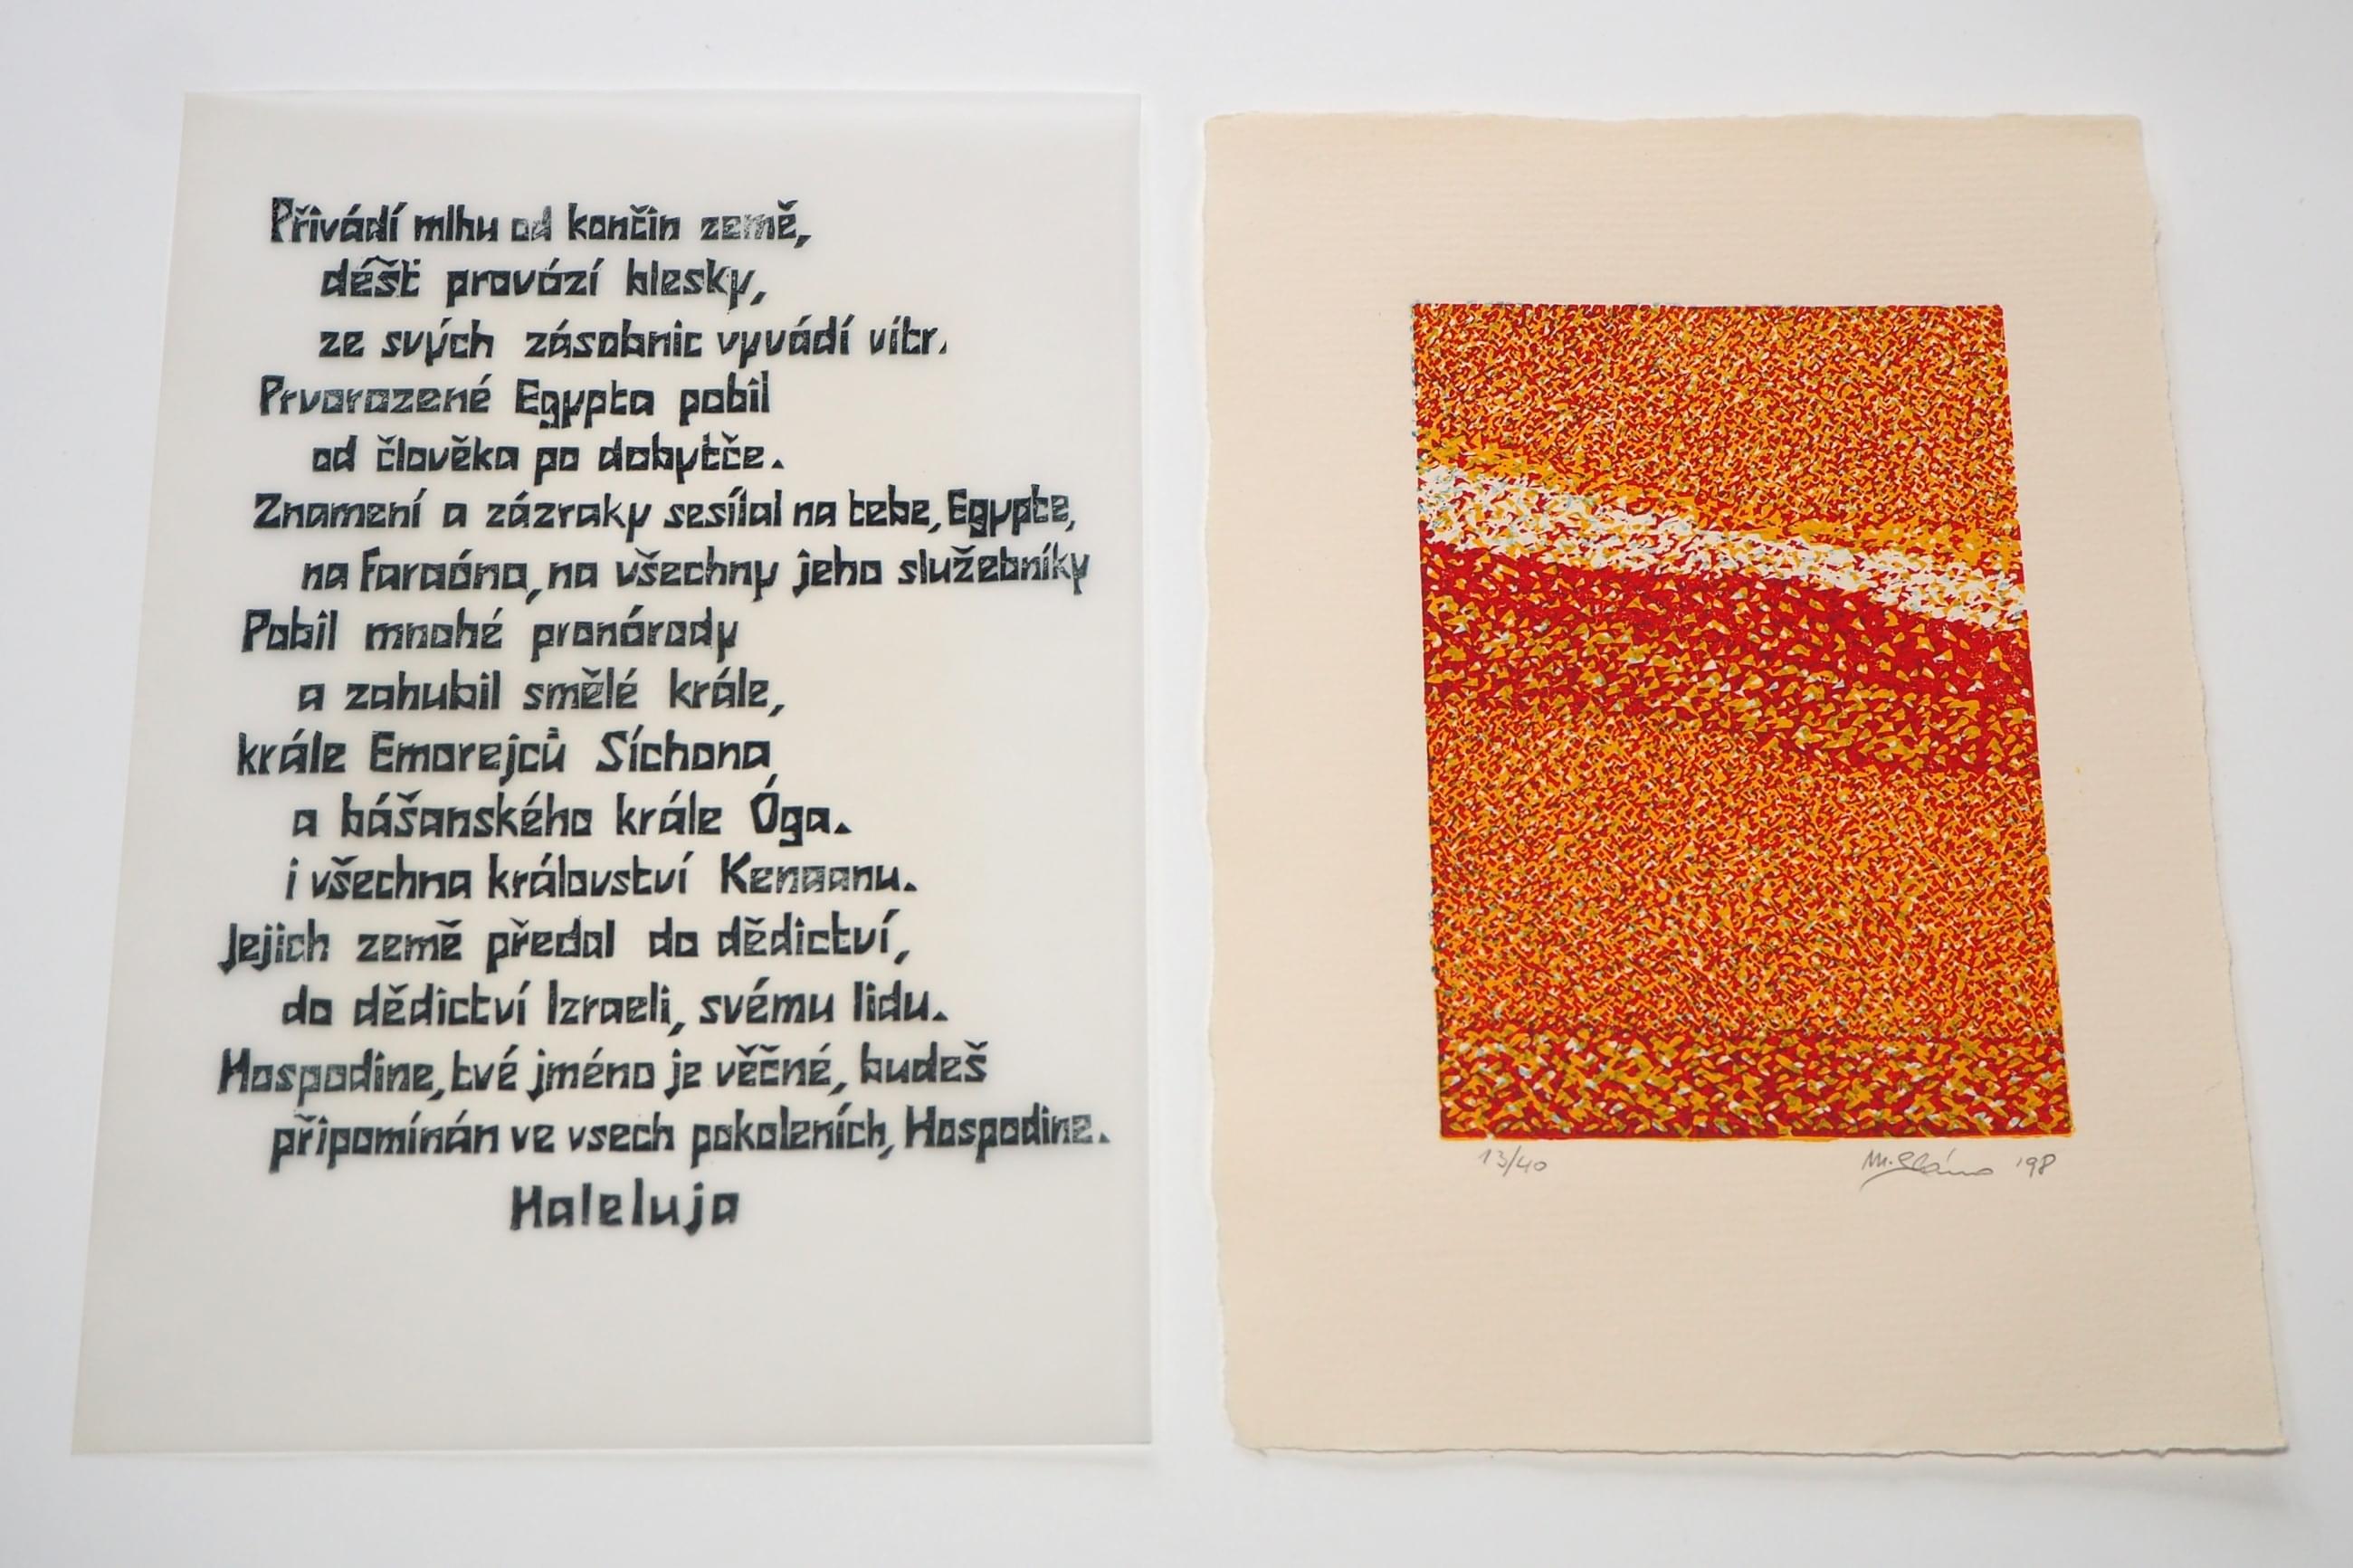 Přivádí mlhu od končin země,
déšť provází blesky,
ze svých zásobnic vyvádí vítr.
Prvorozené Egypta pobil
od člověka po dobytče.
Znamení a zázraky sesílal na tebe, Egypte,
na Faraóna, na všechny jeho služebníky
Pobil mnohé pronárody
a zahubil smělé krále,
krále Emorejců Síchona
a bášanského krále Óga.
i všechna království Kenaanu.
Jejich země předal do dědictví,
do dědictví Izraeli, svému lidu.
Hospodine, tvé jméno je věčné, budeš
připomínán ve vsech pokoleních, Hospodine.
Haleluja
13/40 '98